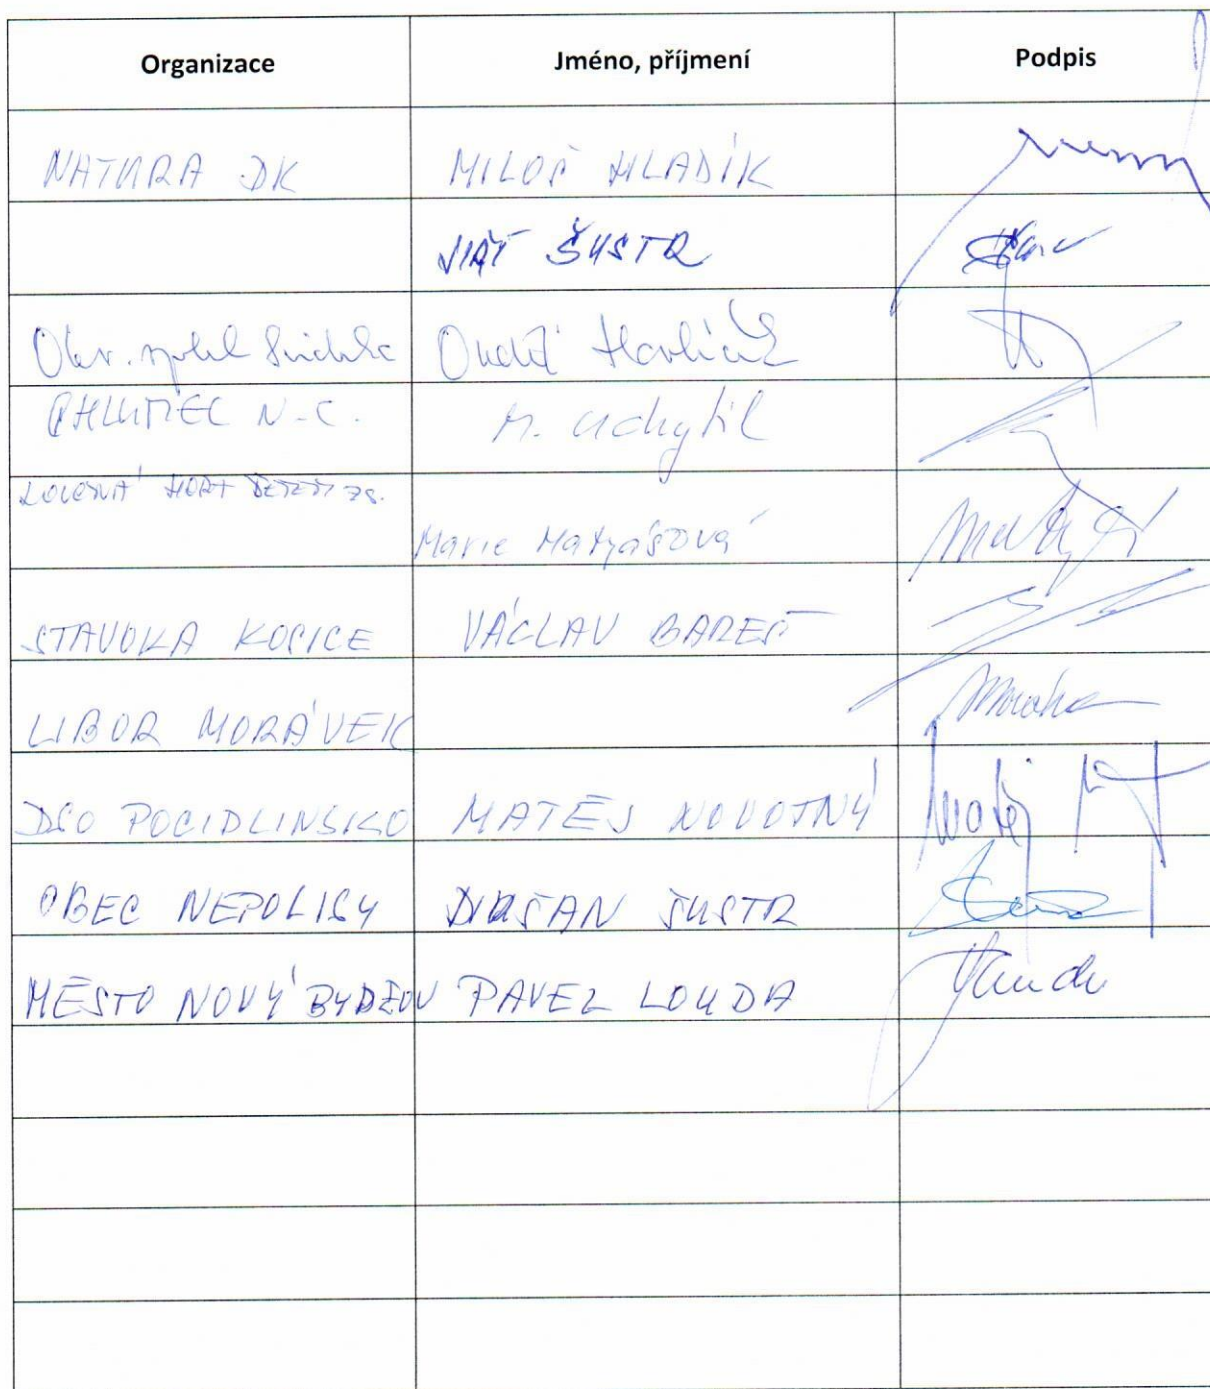 Organizace Jméno, příjmení Podpis
NATURA DK MILOŠ HLADÍK
JIŘÍ ŠUSTR
Ondřej Havlíček
CHLUMEC N.C. M. Uchytil
Marie Matyášová
STAVOKA KOSICE VÁCLAV BAREŠ
LIBOR MORÁVEK
DSO POCIDLINSKO MATĚJ NOVOTNÝ
Matěj
OBEC NEPOLISY DUŠAN ŠUSTR
MĚSTO NOVÝ BYDŽOV PAVEL LOUDA